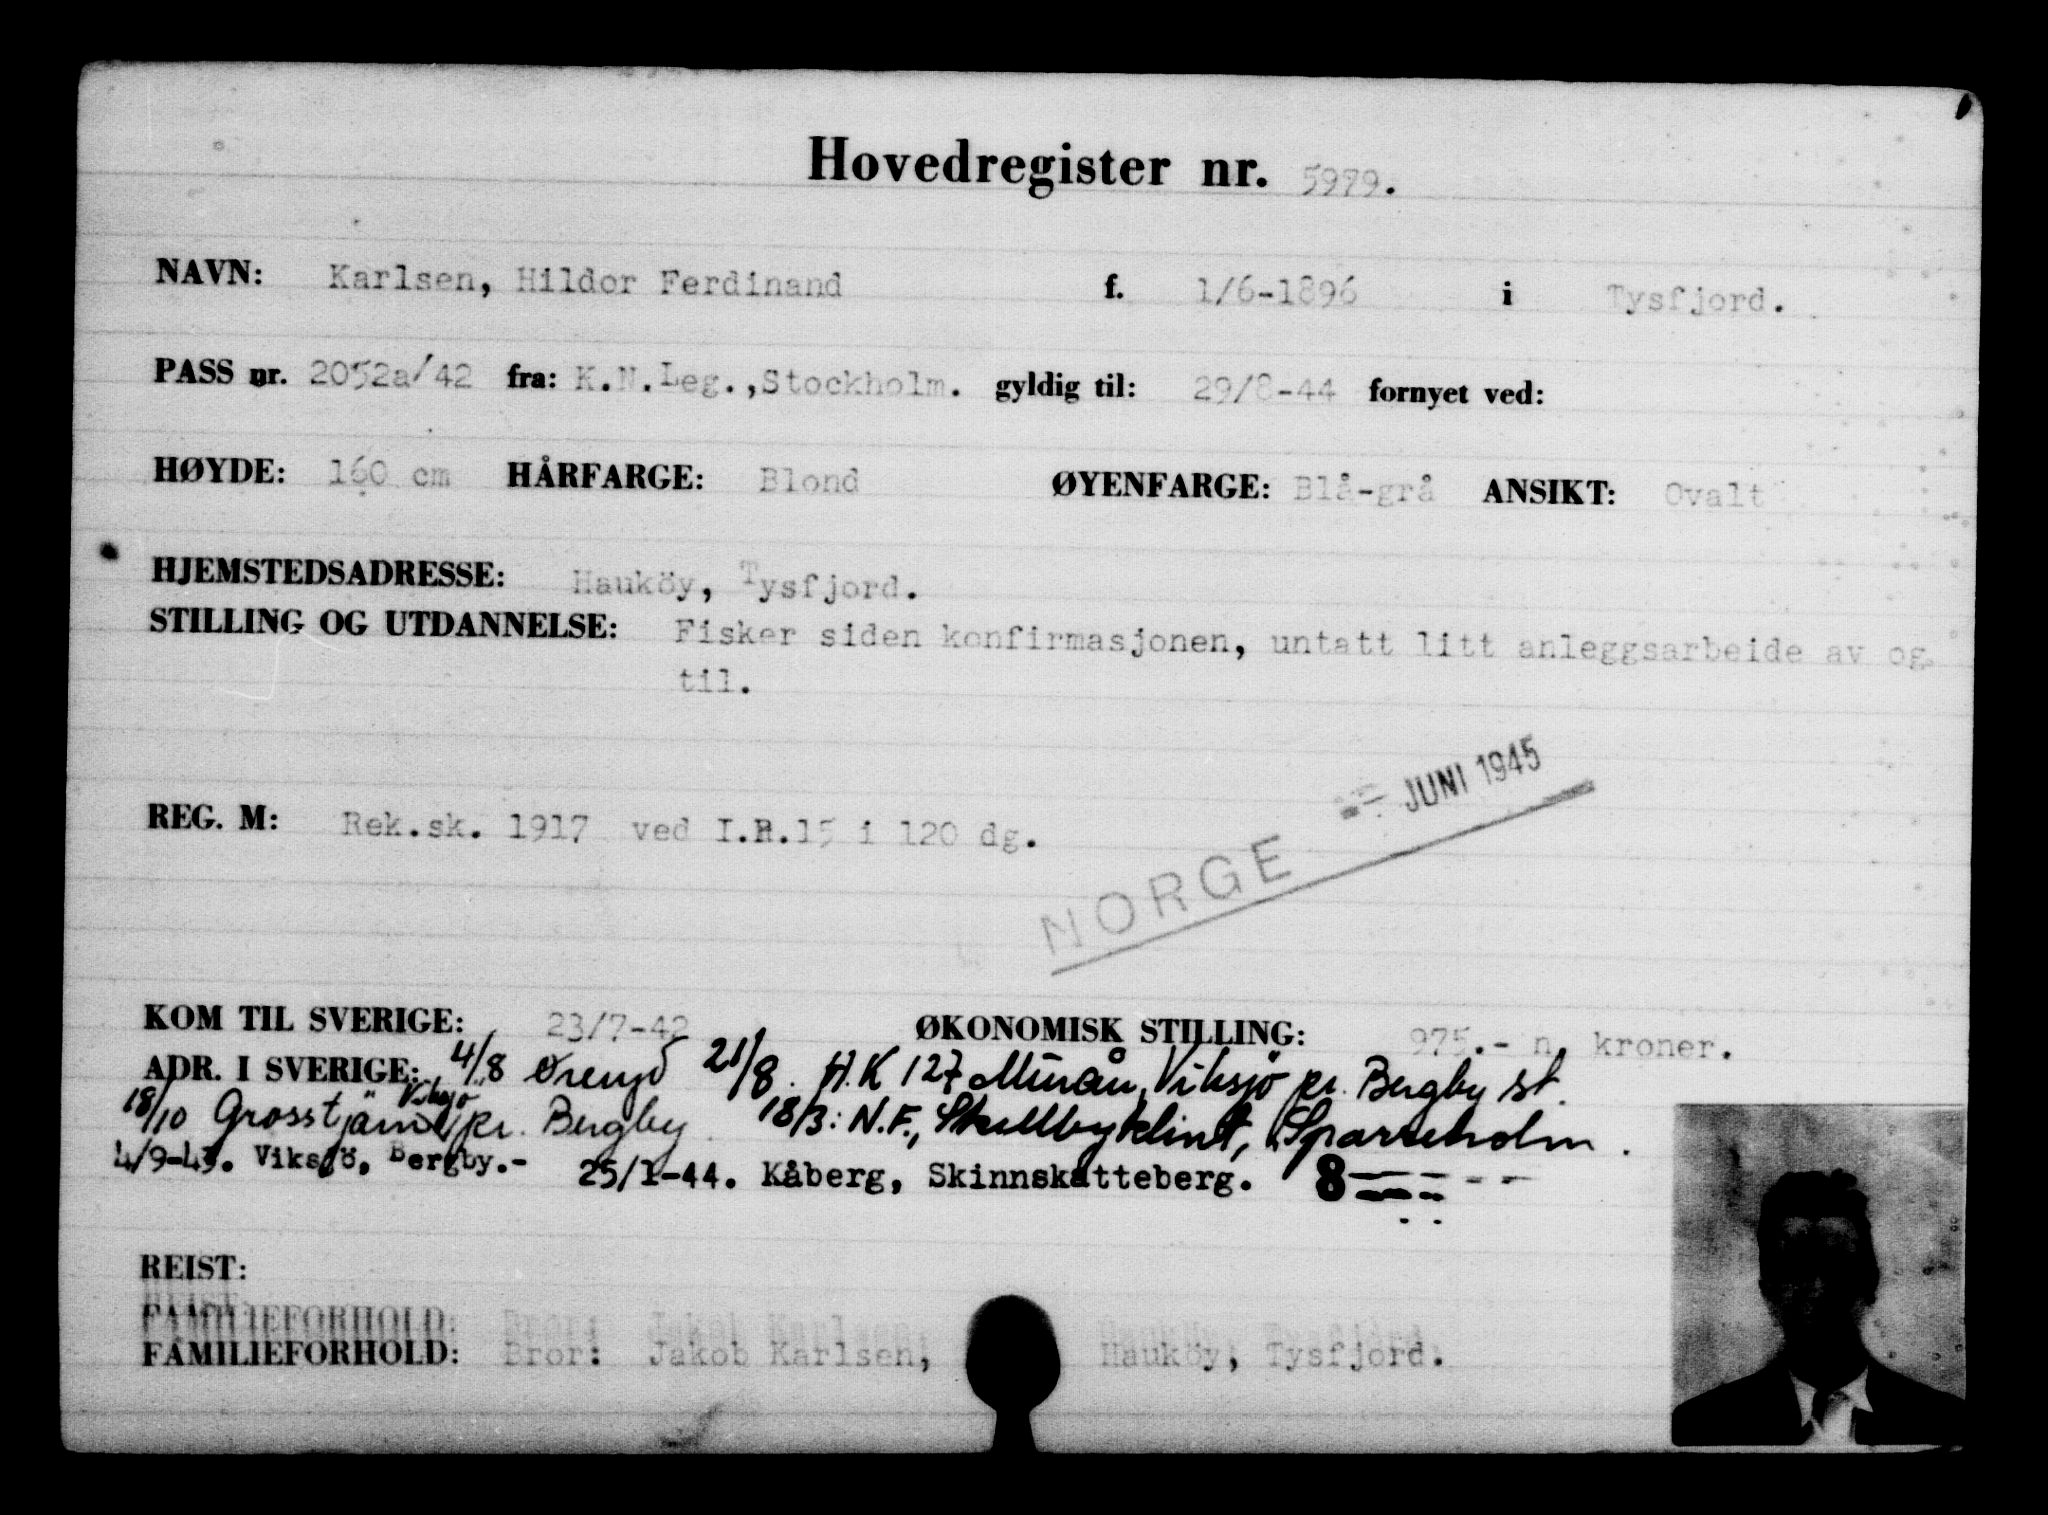 Hovedregister nr. 5979.
NAVN: Karlsen, Hildor Ferdinand f. 1/6-1896 i Tysfjord.
PASS nr. 2052a/42 fra: K.N.Leg.,Stockholm. gyldig til: 29/8-44 fornyet ved:
HØYDE: 160 cm HÅRFARGE: Blond ØYENFARGE: Blå-grå ANSIKT: Ovalt
HJEMSTEDSADRESSE: Hauköy, Tysfjord.
STILLING OG UTDANNELSE: Fisker siden konfirmasjonen, untatt litt anleggsarbeide av og
til.
JUNI 1945
REG. M: Rek.sk. 1917 ved I.R.15 i 120 dg.
NORGE
KOM TIL SVERIGE: 23/7-42 ØKONOMISK STILLING: 975.- n. kroner.
ADR. I SVERIGE: 4/8 Öreryd 21/8. H.K 127 Viksjö pr. Bergby st.
Viksjö
18/10 Grosstjärn pr. Bergby. 18/3: N.F., Skullbyklint, Sparreholm.
4/9-43. Viksjö, Bergby.- 25/1-44. Kåberg, Skinnskatteberg. 8
REIST:
FAMILIEFORHOLD: Bror: Jakob Karlsen, Hauköy, Tysfjord.